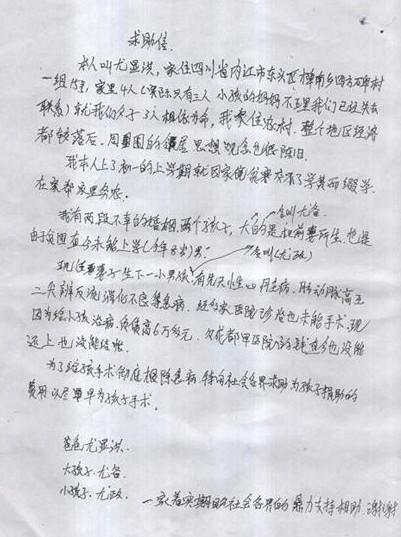 求助信
本人叫尤显洪,家住四川省内江市东兴区
一组15号,家里4人(实际只有三人 小孩的妈妈不在我们已经失去
联系)就我们父子3人相依为命,我家住农村,整个地区经济
都较落后,周围的邻居思想观念也很陈旧.
我本人上了初一的上学期就因家
在家务农.
我有两段不幸的婚姻,两个孩子,大的是和前妻所生,也是
合叫尤备.
由于贫困至今未能上学(今年8岁)男.
合叫(尤政)
现任妻子生下一小男孩,有先天性心脏病、肺动脉高压
二尖瓣反流 消化不良等疾病. 经多家医院诊治也未能手术,现
因为给小孩治病,负债高6万多元,欠成都医院的钱
还上也没能结账.
为了给孩子手术彻底根除疾病,特向社会各界求助为孩子捐助的
费用以尽早为孩子手术.
爸爸 尤显洪.
大孩子. 尤备.
小孩子. 尤政.
一家着实期盼社会各界的鼎力支持相助. 谢谢